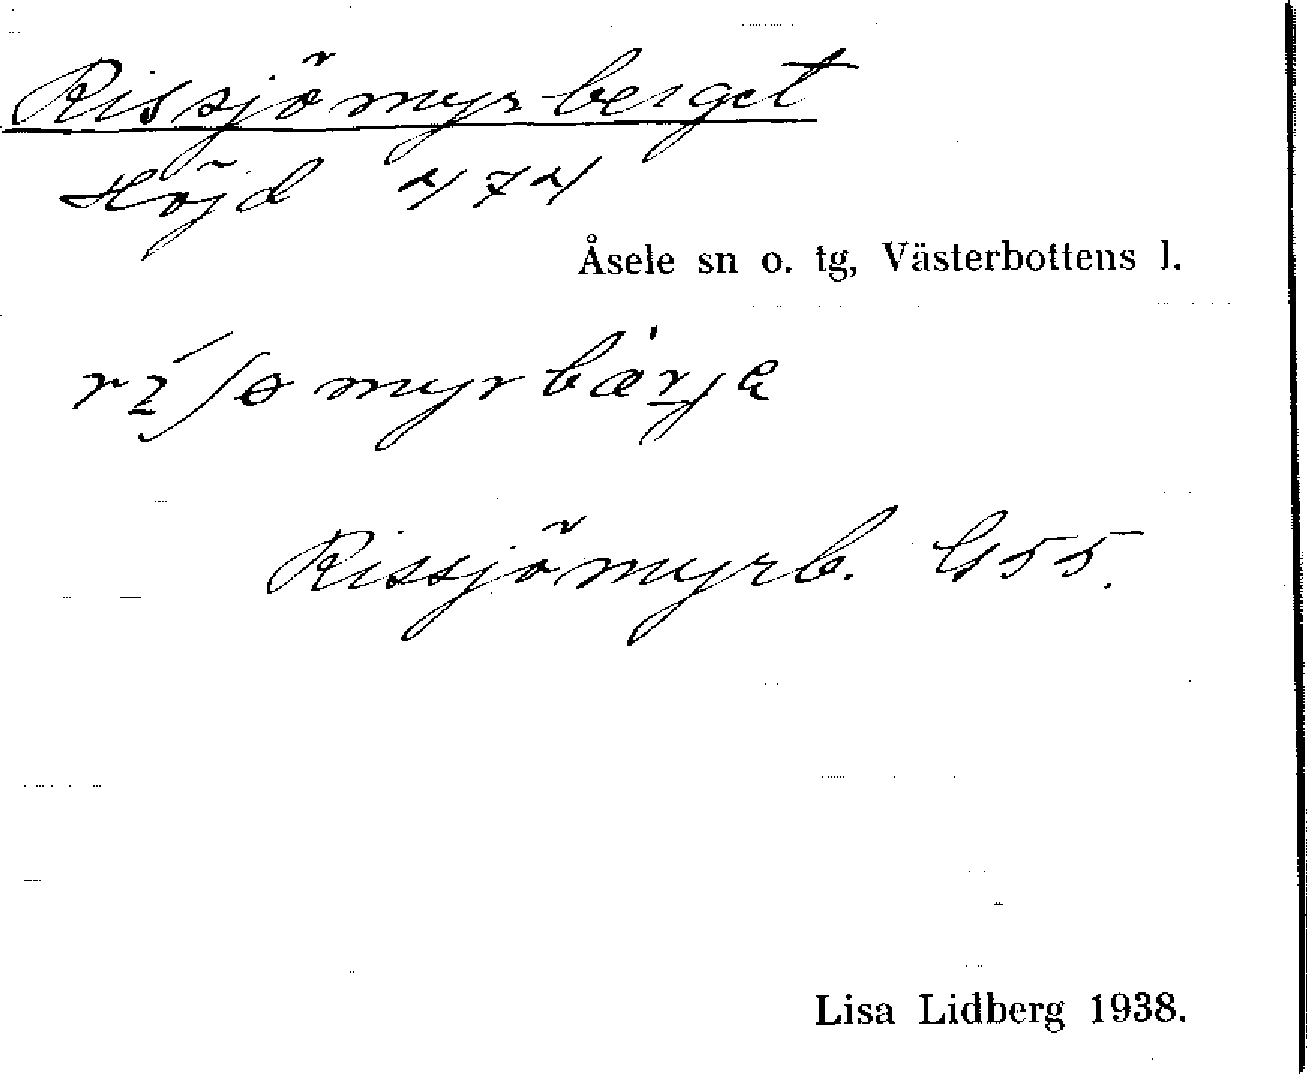 Rissjömyrberget
Höjd 474
Åsele sn o. tg, Västerbottens l.
Rissjömyrb. G55.
Lisa Lidberg 1938.